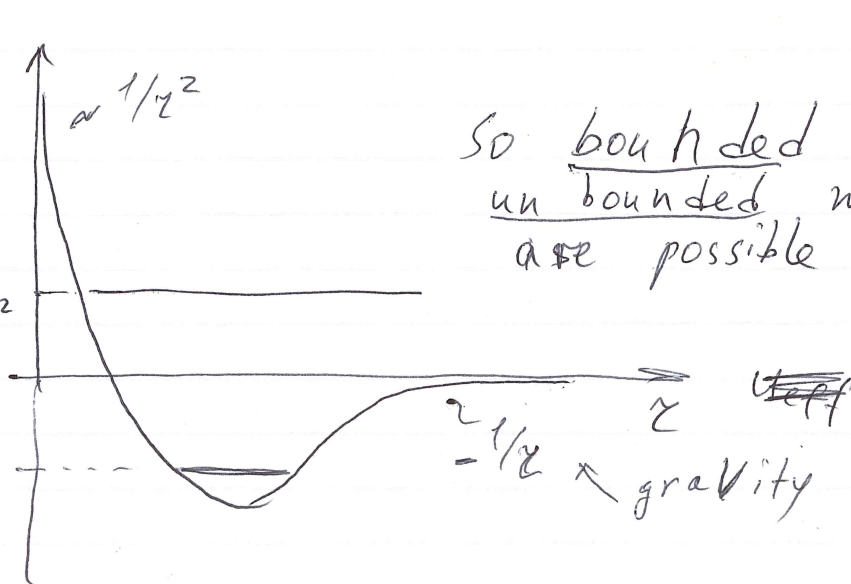 ~ 1/r²
So bounded
un bounded
are possible
2
r
~ - 1/r
gravity